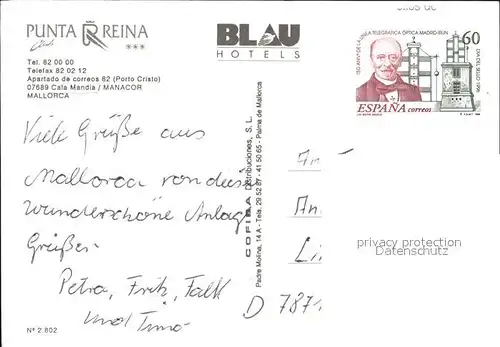 PUNTA REINA
Club ***
Tel. 82 00 00
Telefax 82 02 12
Apartado de correos 82 (Porto Cristo)
07689 Cala Mandia / MANACOR
MALLORCA
BLAU
HOTELS
150 ANIV. DE LA LINEA TELEGRAFICA OPTICA MADRID-IRUN
60
DIA DEL SELLO 1996
ESPAÑA correos
Viele Grüße aus
Mallorca von dieser
wunderschöne Anlage
Grüßen
Petra, Fritz, Falk
und Timo
Nº 2.802
COFIBA Distribuciones, S. L.
Padre Molina, 14 A - Tels. 29 52 87 - 41 50 65 - Palma de Mallorca
An
D 787
privacy protection
Datenschutz